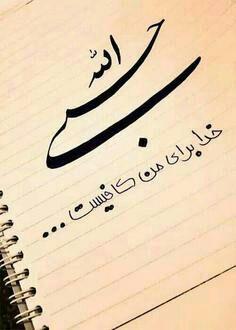 حسبی الله
خدا برای من کافیست...